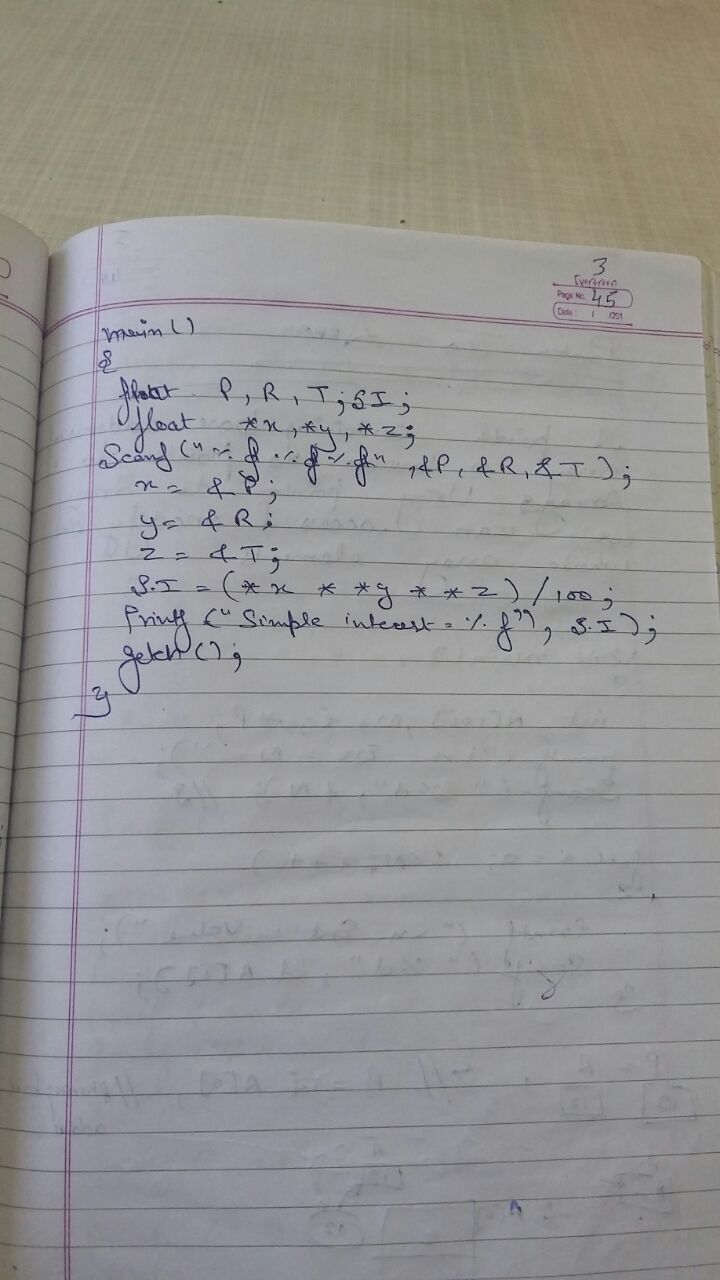 3
Evergreen
Page No. 45
Date: / /201
main()
{
float P, R, T; SI;
float *x, *y, *z;
Scanf ("%f %f %f", &P, &R, &T);
x = &P;
y = &R;
z = &T;
S.I = (*x * *y * *z) / 100;
Printf ("Simple interest = %f", S.I);
getch();
}